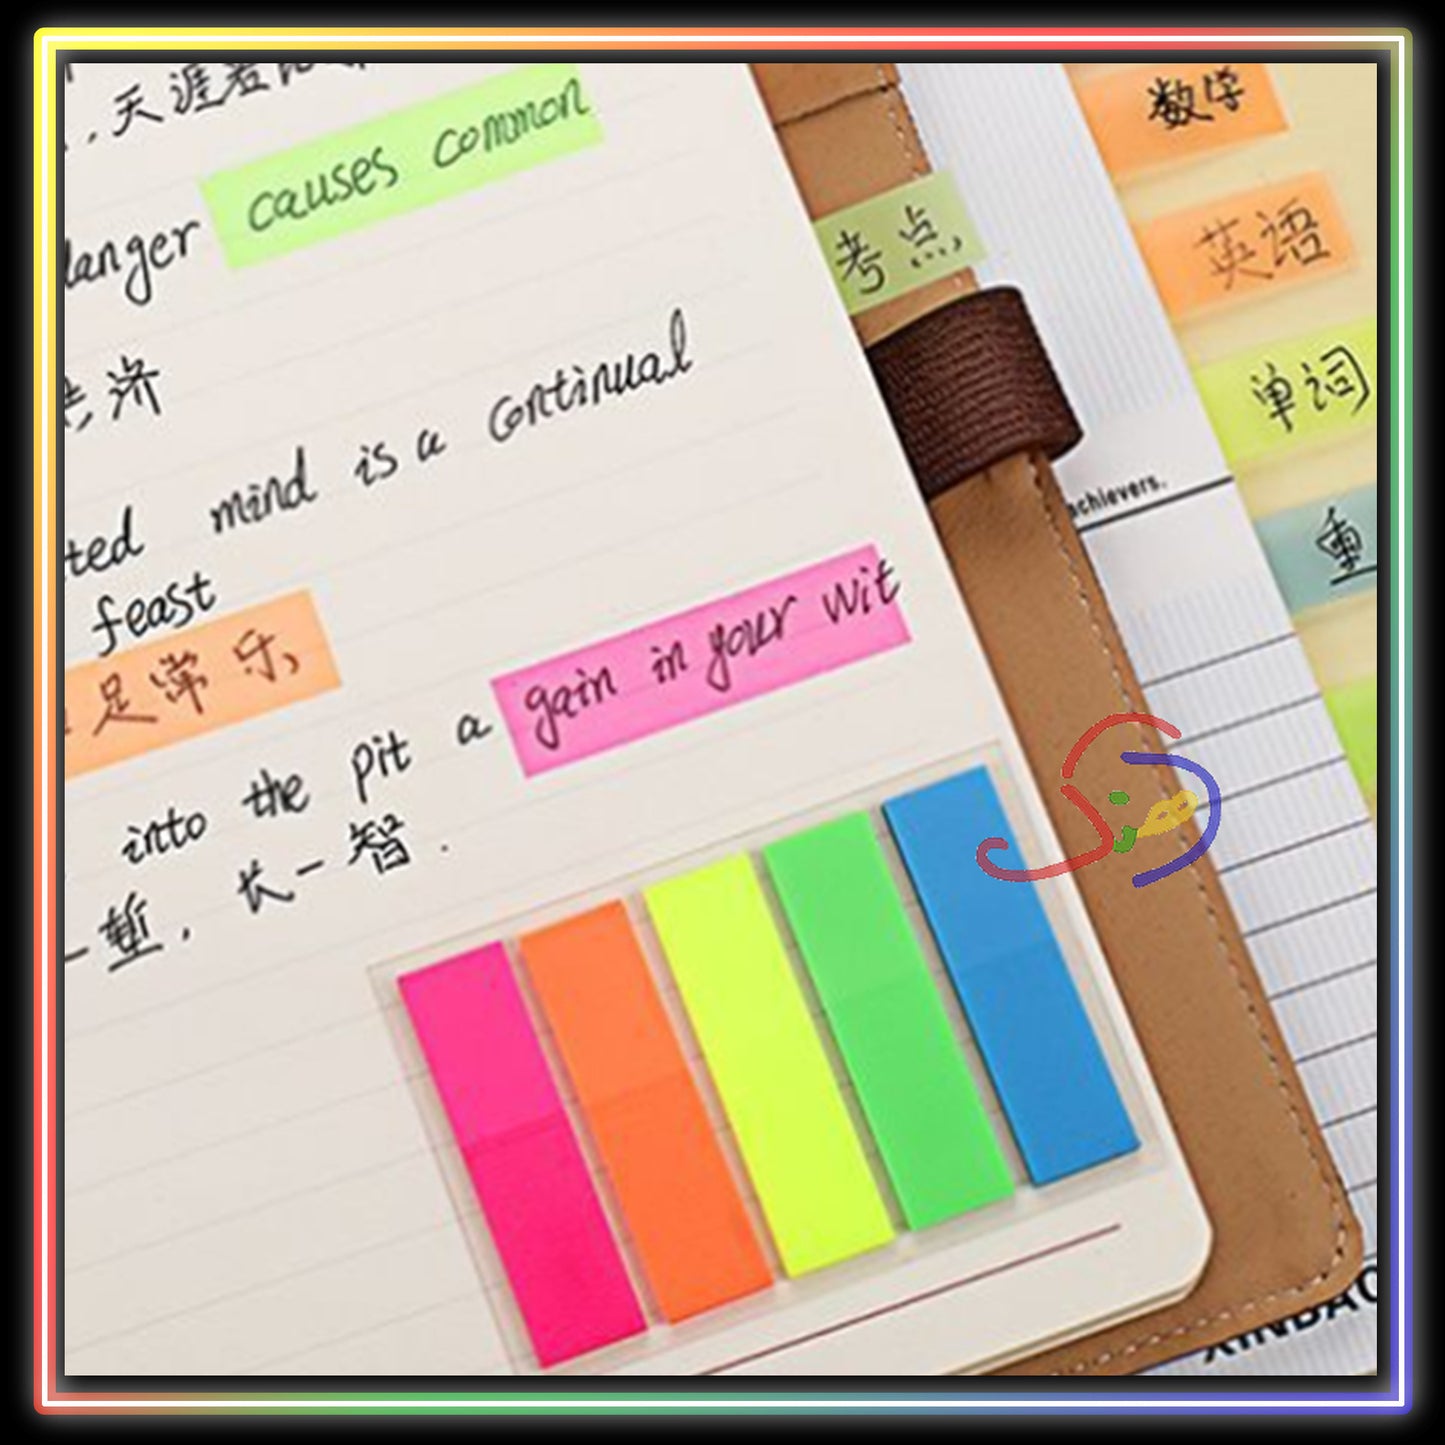 ,天涯若比邻
danger causes common
共济
ted mind is a continual
feast
足常乐
into the pit a gain in your wit
一堑,长一智.
考点
数学
英语
单词
重
achievers.
XINBAO